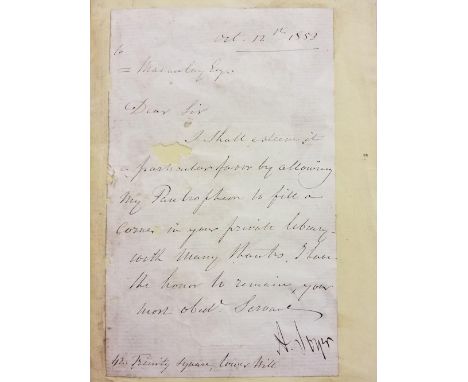 Oct. 12th 1853
to
= Macaulay Esqr.
Dear Sir
I shall esteem it
a particular favor by allowing
my Pantropheon to fill a
corner in your private library
with many thanks. I have
the honor to remain, your
most obedt. Servant
A. Soyer
42. Trinity Square, Tower Hill